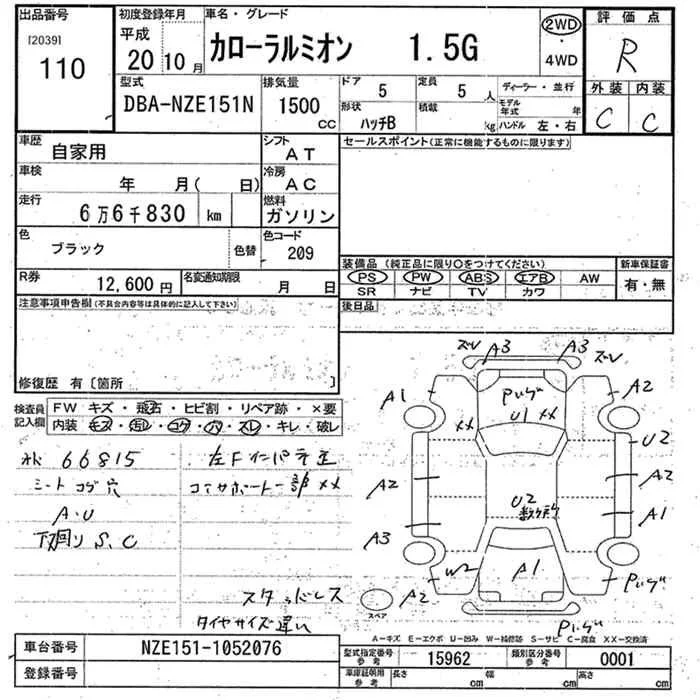 出品番号
[2039]
110
初度登録年月
平成
20 10 月
車名・グレード
カローラルミオン 1.5G
2WD
・
4WD
評価点
R
外装 内装
C C
型式
DBA-NZE151N
排気量
1500
CC
ドア 5
定員 5 人
形状 ハッチB
積載 kg
ディーラー・並行
モデル年式 年
ハンドル 左・右
車歴
自家用
シフト
AT
セールスポイント(正常に機能するものに限ります)
車検
年 月( 日)
冷房
AC
走行
6万6千830 km
燃料
ガソリン
色
ブラック
色替
色コード
209
R券
12,600円
名変通知期限
月 日
装備品 (純正品に限り○をつけてください)
新車保証書
PS PW ABS エアB AW
有・無
SR ナビ TV カワ
後日品
注意事項申告欄(不具合内容等は具体的に記入して下さい)
修復歴 有〔箇所 〕
検査員
記入欄
FW キズ・飛石・ヒビ割・リペア跡・×要
内装 キズ・汚レ・コゲ・穴・スレ・キレ・破レ
66815
シートコゲ穴
A・U
下回りS、C
左Fインパネ歪
コアサポート一部××
スタッドレス
タイヤサイズ違い
ズレ A3 A3 ズレ
A1 Pいげ A2
×× U1 ××
U2
A2 A2
U2
A1
A3
W2 A1 Pいげ
A2
スペア
Pいげ
A-キズ E-エクボ U-凹み W-補修跡 S-サビ C-腐食 XX-交換済
車台番号
NZE151-1052076
登録番号
型式指定番号
参考
15962
類別区分番号
参考
0001
車庫証明用
参考
長さ cm
幅 cm
高さ cm